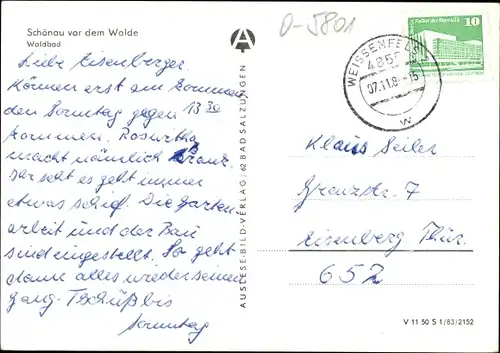 Schönau vor dem Walde
Waldbad
Liebe Eisenberger.
Können erst am kommen
den Sonntag gegen 13 30
kommen. Roswitha
macht nämlich
Ihr seht es geht immer
etwas schief. Die Garten
arbeit und der Bau
sind eingestellt. So geht
dann alles wieder seinen
gang. Tschüß bis
Sonntag
AUSLESE-BILD-VERLAG · 62 BAD SALZUNGEN
D-5801
WEISSENFELS 1
485
07.11.8 -15
w
10
Klaus Seiler
Grenzstr. 7
Eisenberg Thür.
652
V 11 50 S 1/83/2152